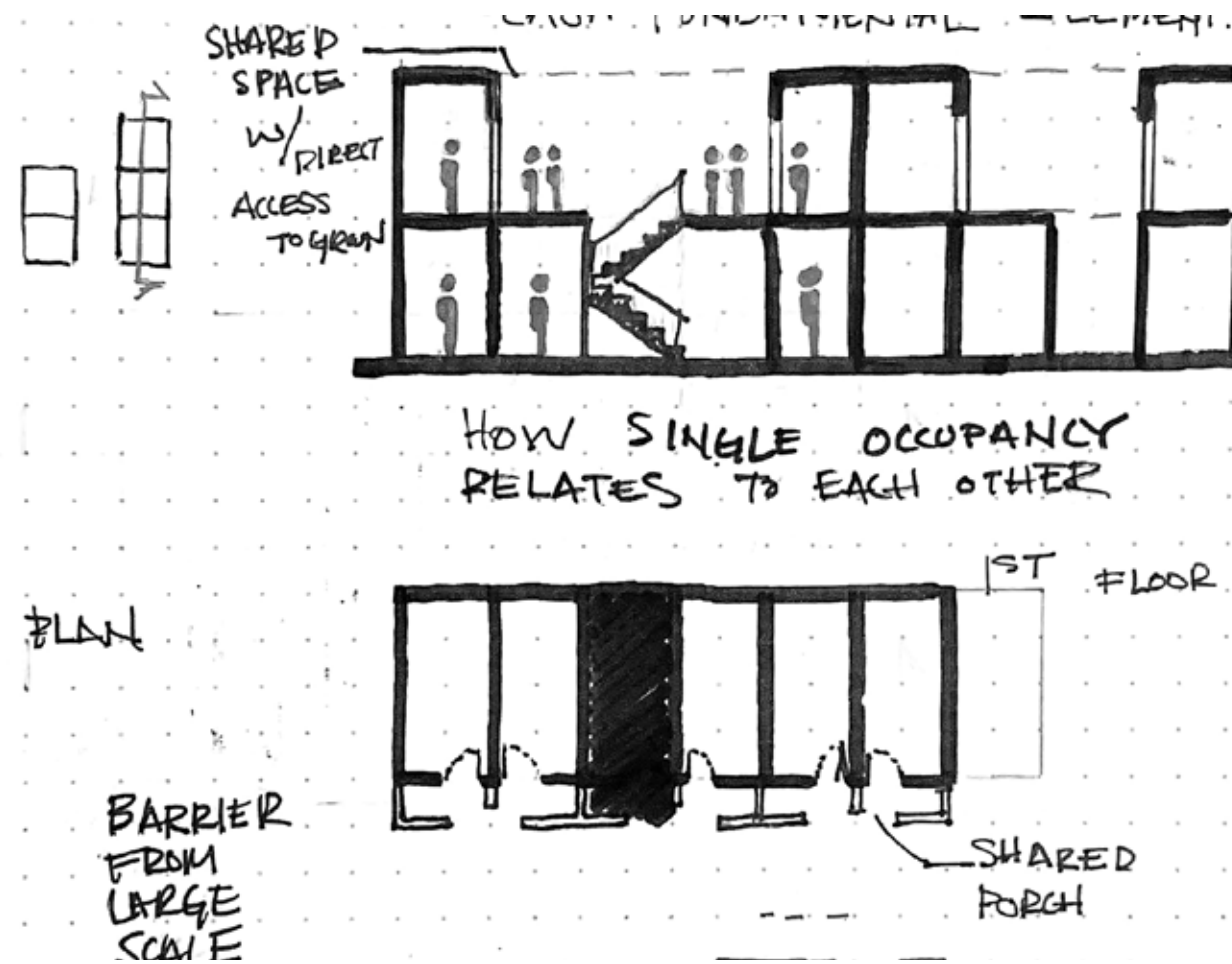 SHARED
SPACE
W/DIRECT
ACCESS
HOW SINGLE OCCUPANCY
RELATES TO EACH OTHER
1ST FLOOR
PLAN
BARRIER
FROM
LARGE
SCALE
SHARED
PORCH